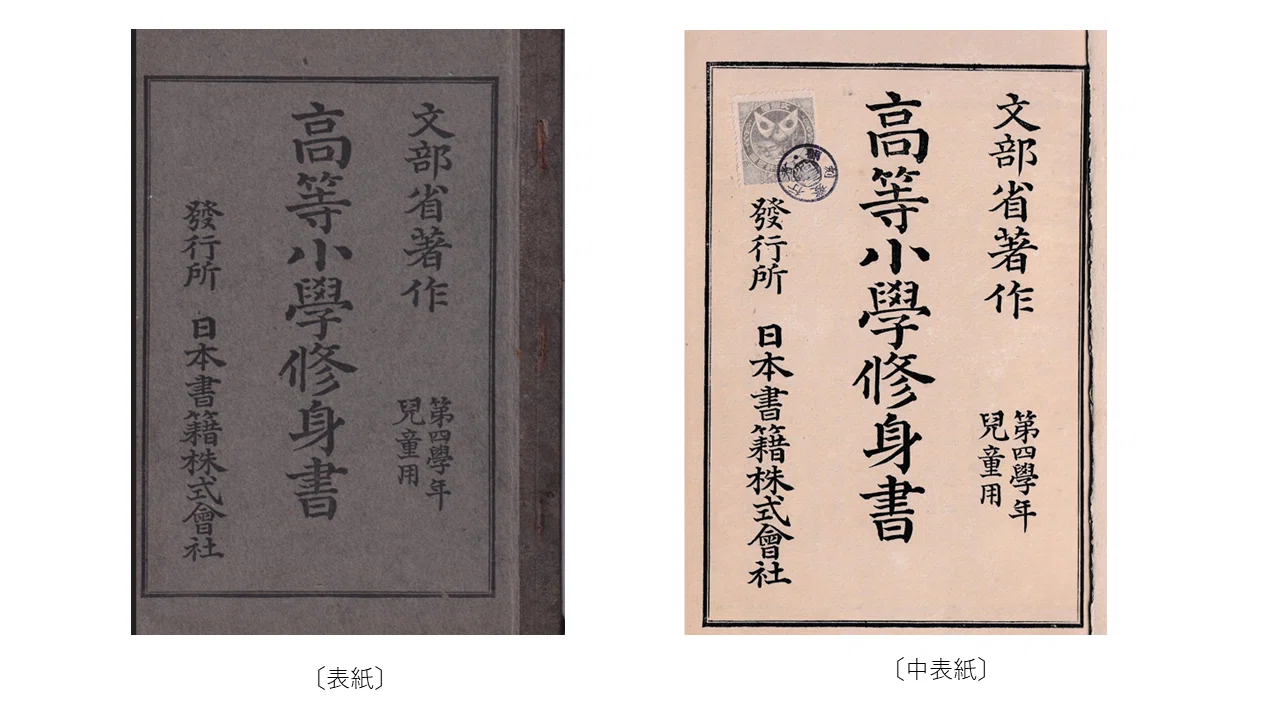 文部省著作
第四學年
兒童用
高等小學修身書
發行所 日本書籍株式會社
〔表紙〕
文部省著作
第四學年
兒童用
高等小學修身書
發行所 日本書籍株式會社
〔中表紙〕